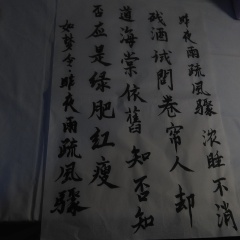 昨夜雨疏風驟濃睡不消
残酒試問卷帘人却
道海棠依舊知否知
否應是綠肥紅瘦
如梦令昨夜雨疏風驟